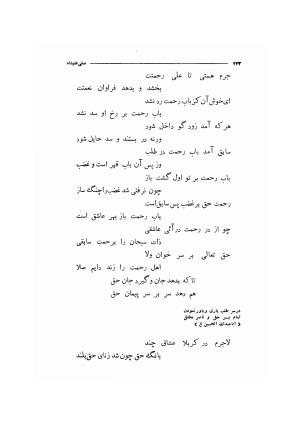 ۲۲۳
صفی علیشاه
جرم هستی تا علی رحمتت
بخشد و بدهد فراوان نعمتت
ای خوش آن کز باب رحمت رو نشد
باب رحمت بر رخ او سد نشد
هر که آمد زود گو داخل شود
ورنه در بستند و سد حایل شود
سابق آمد باب رحمت در طلب
وز پس آن باب قهر است و غضب
باب رحمت بر تو اول گشت باز
چون نرفتی شد غضب را چنگ ساز
رحمت حق بر غضب پس سابق است
باب رحمت باز بهر عاشق است
چو از در رحمت در آئی عاشقی
ذات سبحان را بر حمت سابقی
حق تعالی بر سر خوان ولا
اهل رحمت را زند دایم صلا
تا که بدهد جان و گیرد جان حق
هم دهد سر بر سر پیمان حق
در سر طلب یاری و یاور نمودن
امام بر حق و ناصر مطلق
(اباعبدالله الحسین ع)
لاجرم در کربلا عشاق چند
بانگ حق چون شد ز نای حق بلند